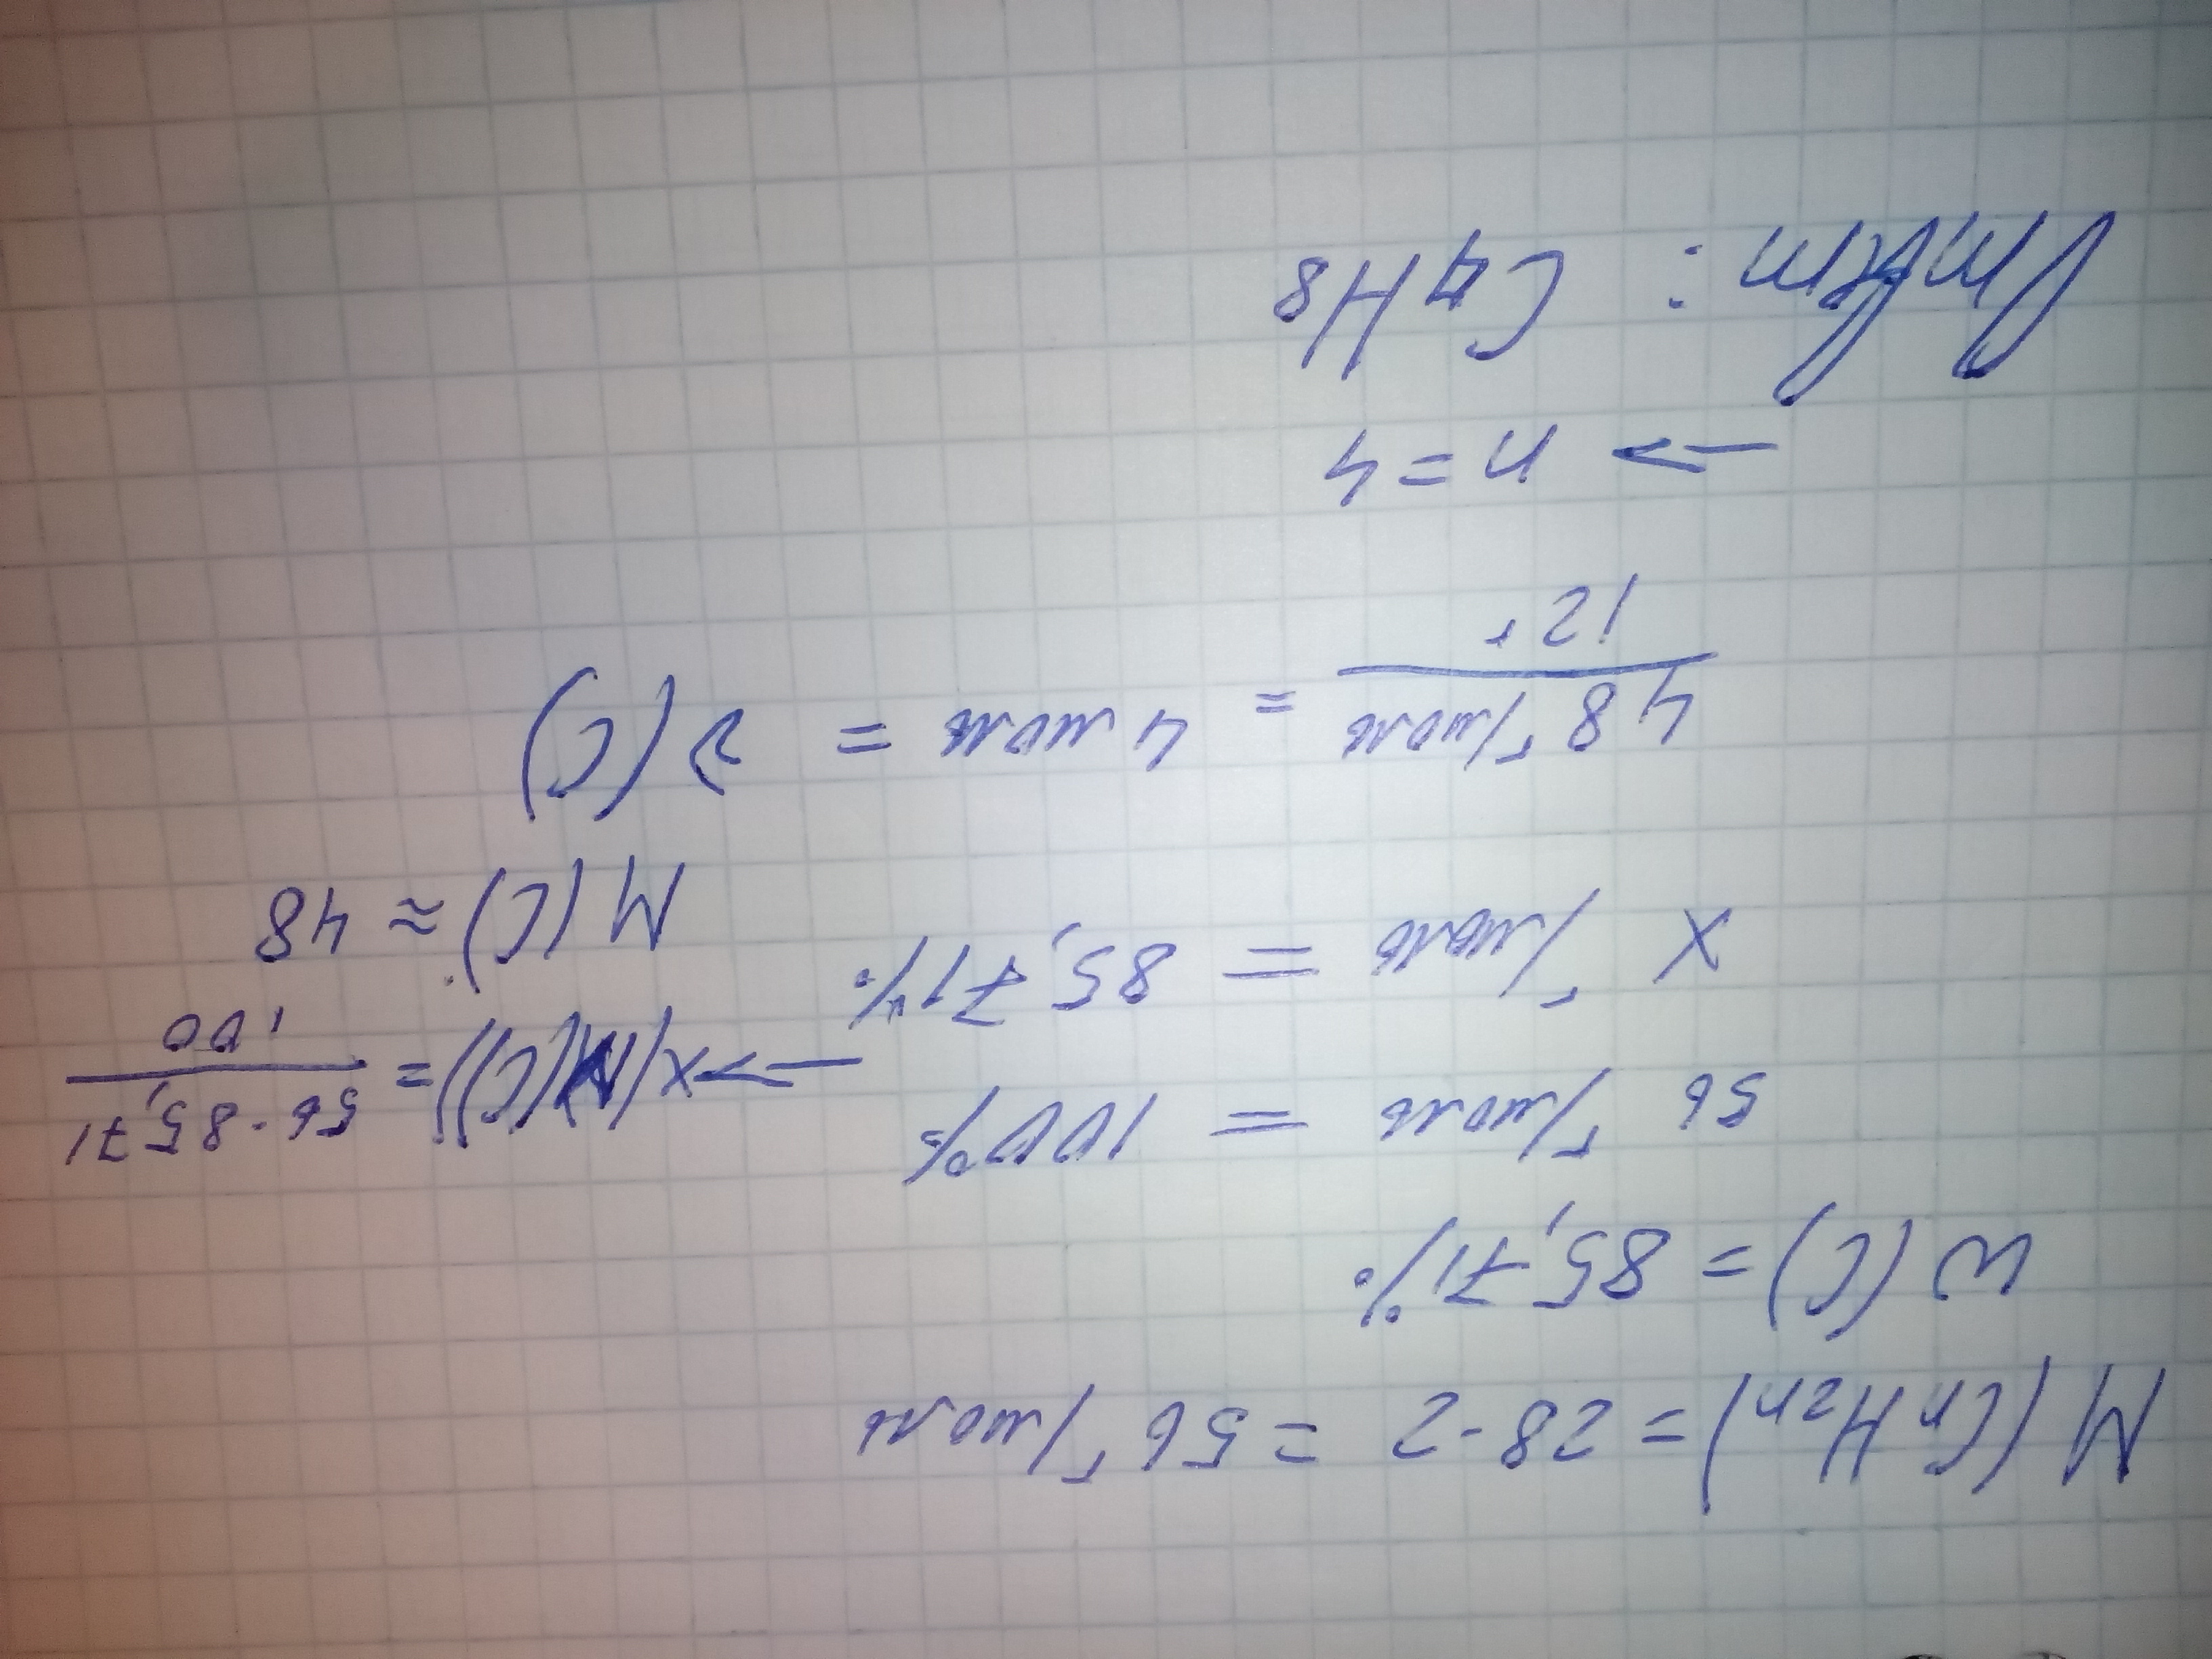 M(CnH2n) = 28·2 = 56 г/моль
w(C) = 85,71%
56 г/моль = 100%
x г/моль = 85,71%
→ x(M(C)) = 56·85,71 / 100
M(C) ≈ 48
48 г/моль / 12 г = 4 моль = ν(C)
→ n = 4
Ответ: C4H8